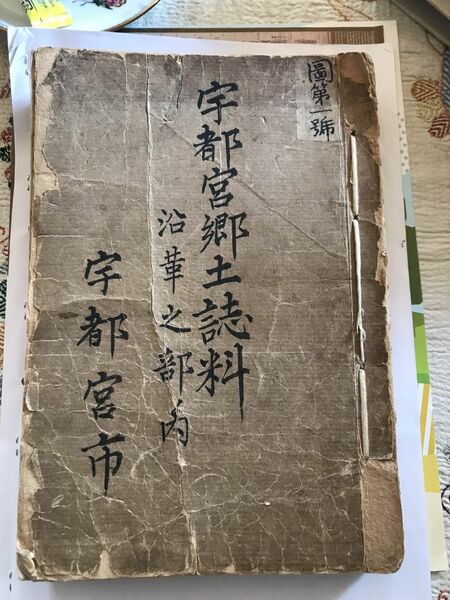 圖第一號
宇都宮郷土誌料
沿革之部内
宇都宮市